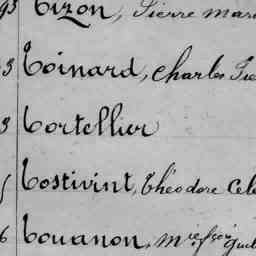 93 Tizon, Pierre Mari
3 Toinard, Charles
3 Tortellier
Tostivint, Théodore Cel
6 Touanon, Mre